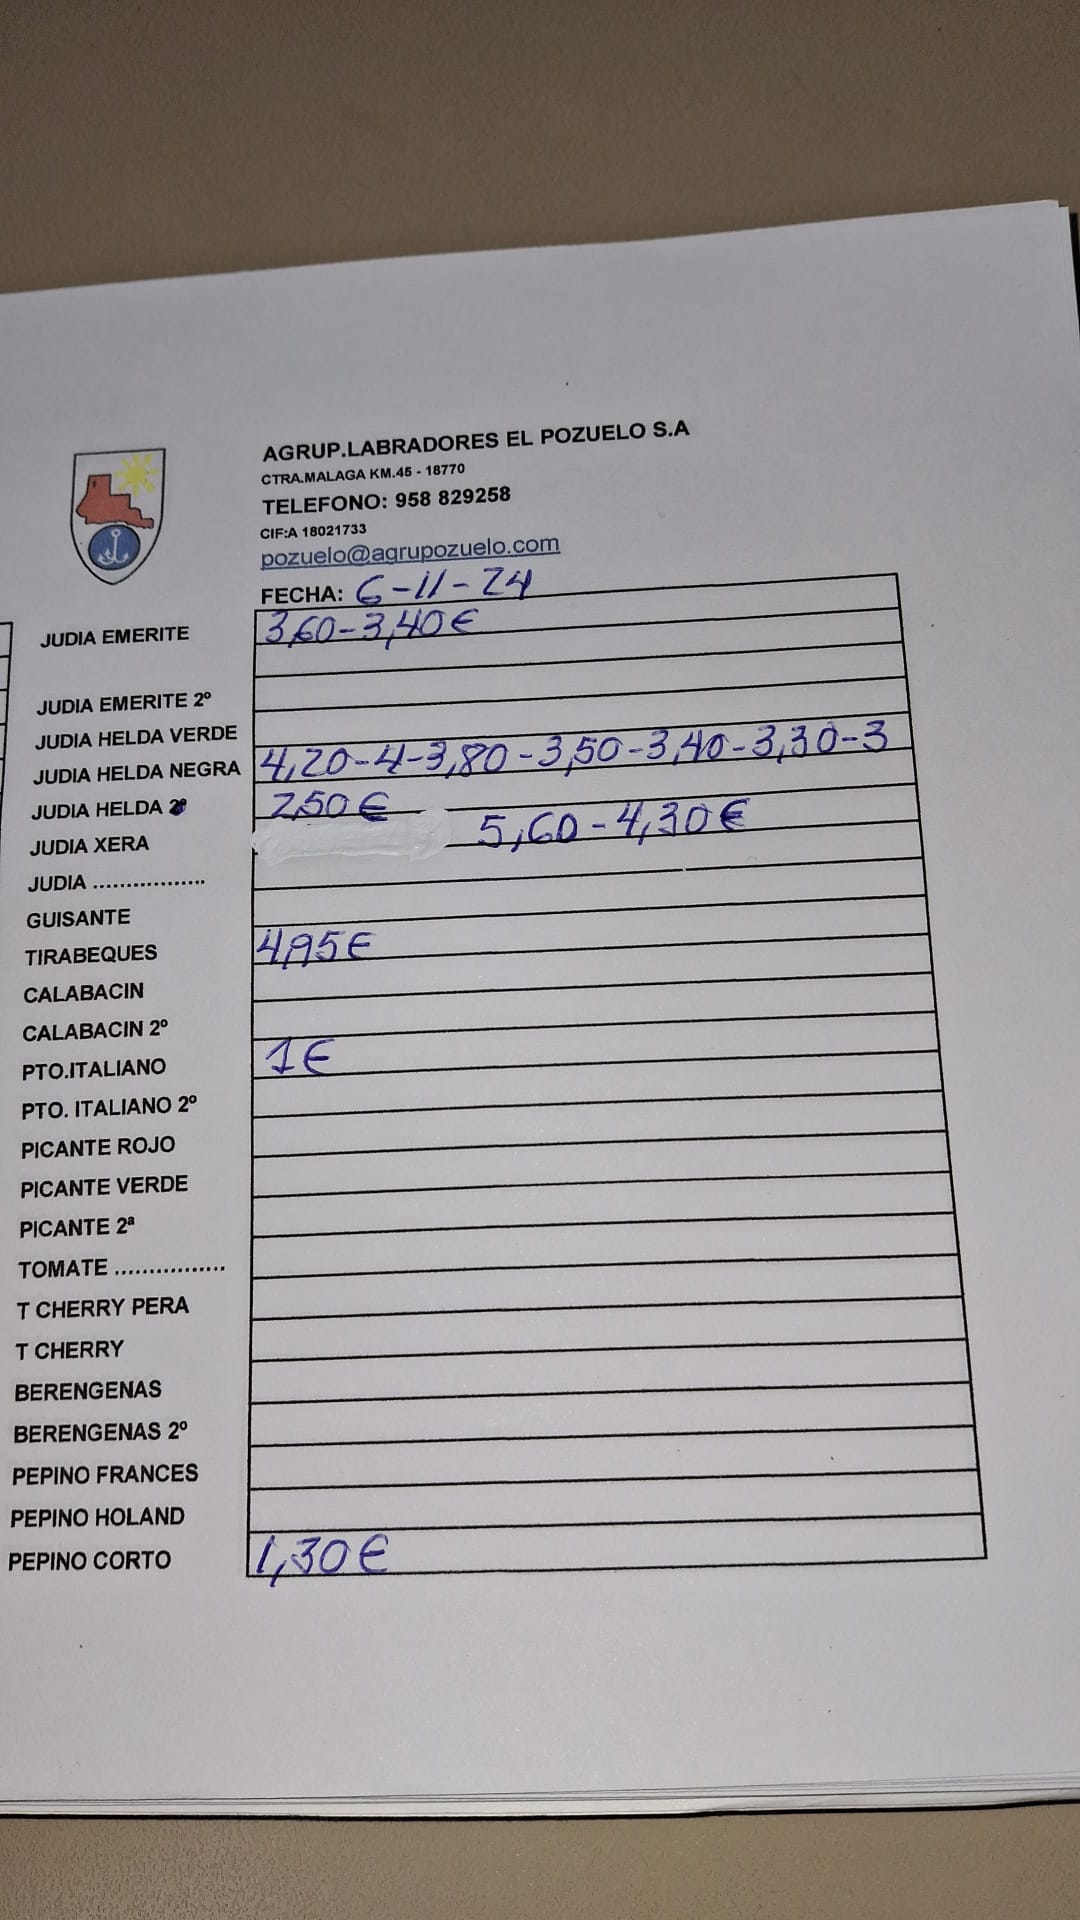 AGRUP.LABRADORES EL POZUELO S.A
CTRA.MALAGA KM.45 - 18770
TELEFONO: 958 829258
CIF:A 18021733
pozuelo@agrupozuelo.com
FECHA: 6-11-24
JUDIA EMERITE 3,60-3,40€
JUDIA EMERITE 2º
JUDIA HELDA VERDE
JUDIA HELDA NEGRA 4,20-4-3,80-3,50-3,40-3,30-3
JUDIA HELDA 2ª 2,50€
JUDIA XERA 5,60-4,30€
JUDIA .................
GUISANTE
TIRABEQUES 4,95€
CALABACIN
CALABACIN 2º
PTO.ITALIANO 1€
PTO. ITALIANO 2º
PICANTE ROJO
PICANTE VERDE
PICANTE 2ª
TOMATE ................
T CHERRY PERA
T CHERRY
BERENGENAS
BERENGENAS 2º
PEPINO FRANCES
PEPINO HOLAND
PEPINO CORTO 1,30€